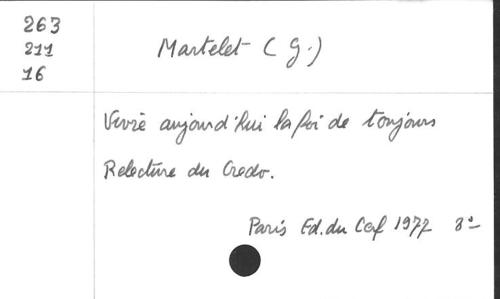 263
211
16
Martelet (G.)
Vivre aujourd'hui la foi de toujours
Relecture du Credo.
Paris Ed. du Cerf 1977 8°